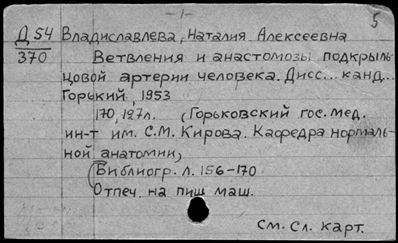 -1-
5
Д 54 Владиславлева, Наталия Алексеевна
370 Ветвления и анастомозы подкрыль-
цовой артерии человека. Дисс... канд...
Горький, 1953
170, 127л. (Горьковский гос. мед.
ин-т им. С.М. Кирова. Кафедра нормаль-
ной анатомии)
(Библиогр. л. 156-170
Отпеч. на пиш маш.
См. Сл. карт.